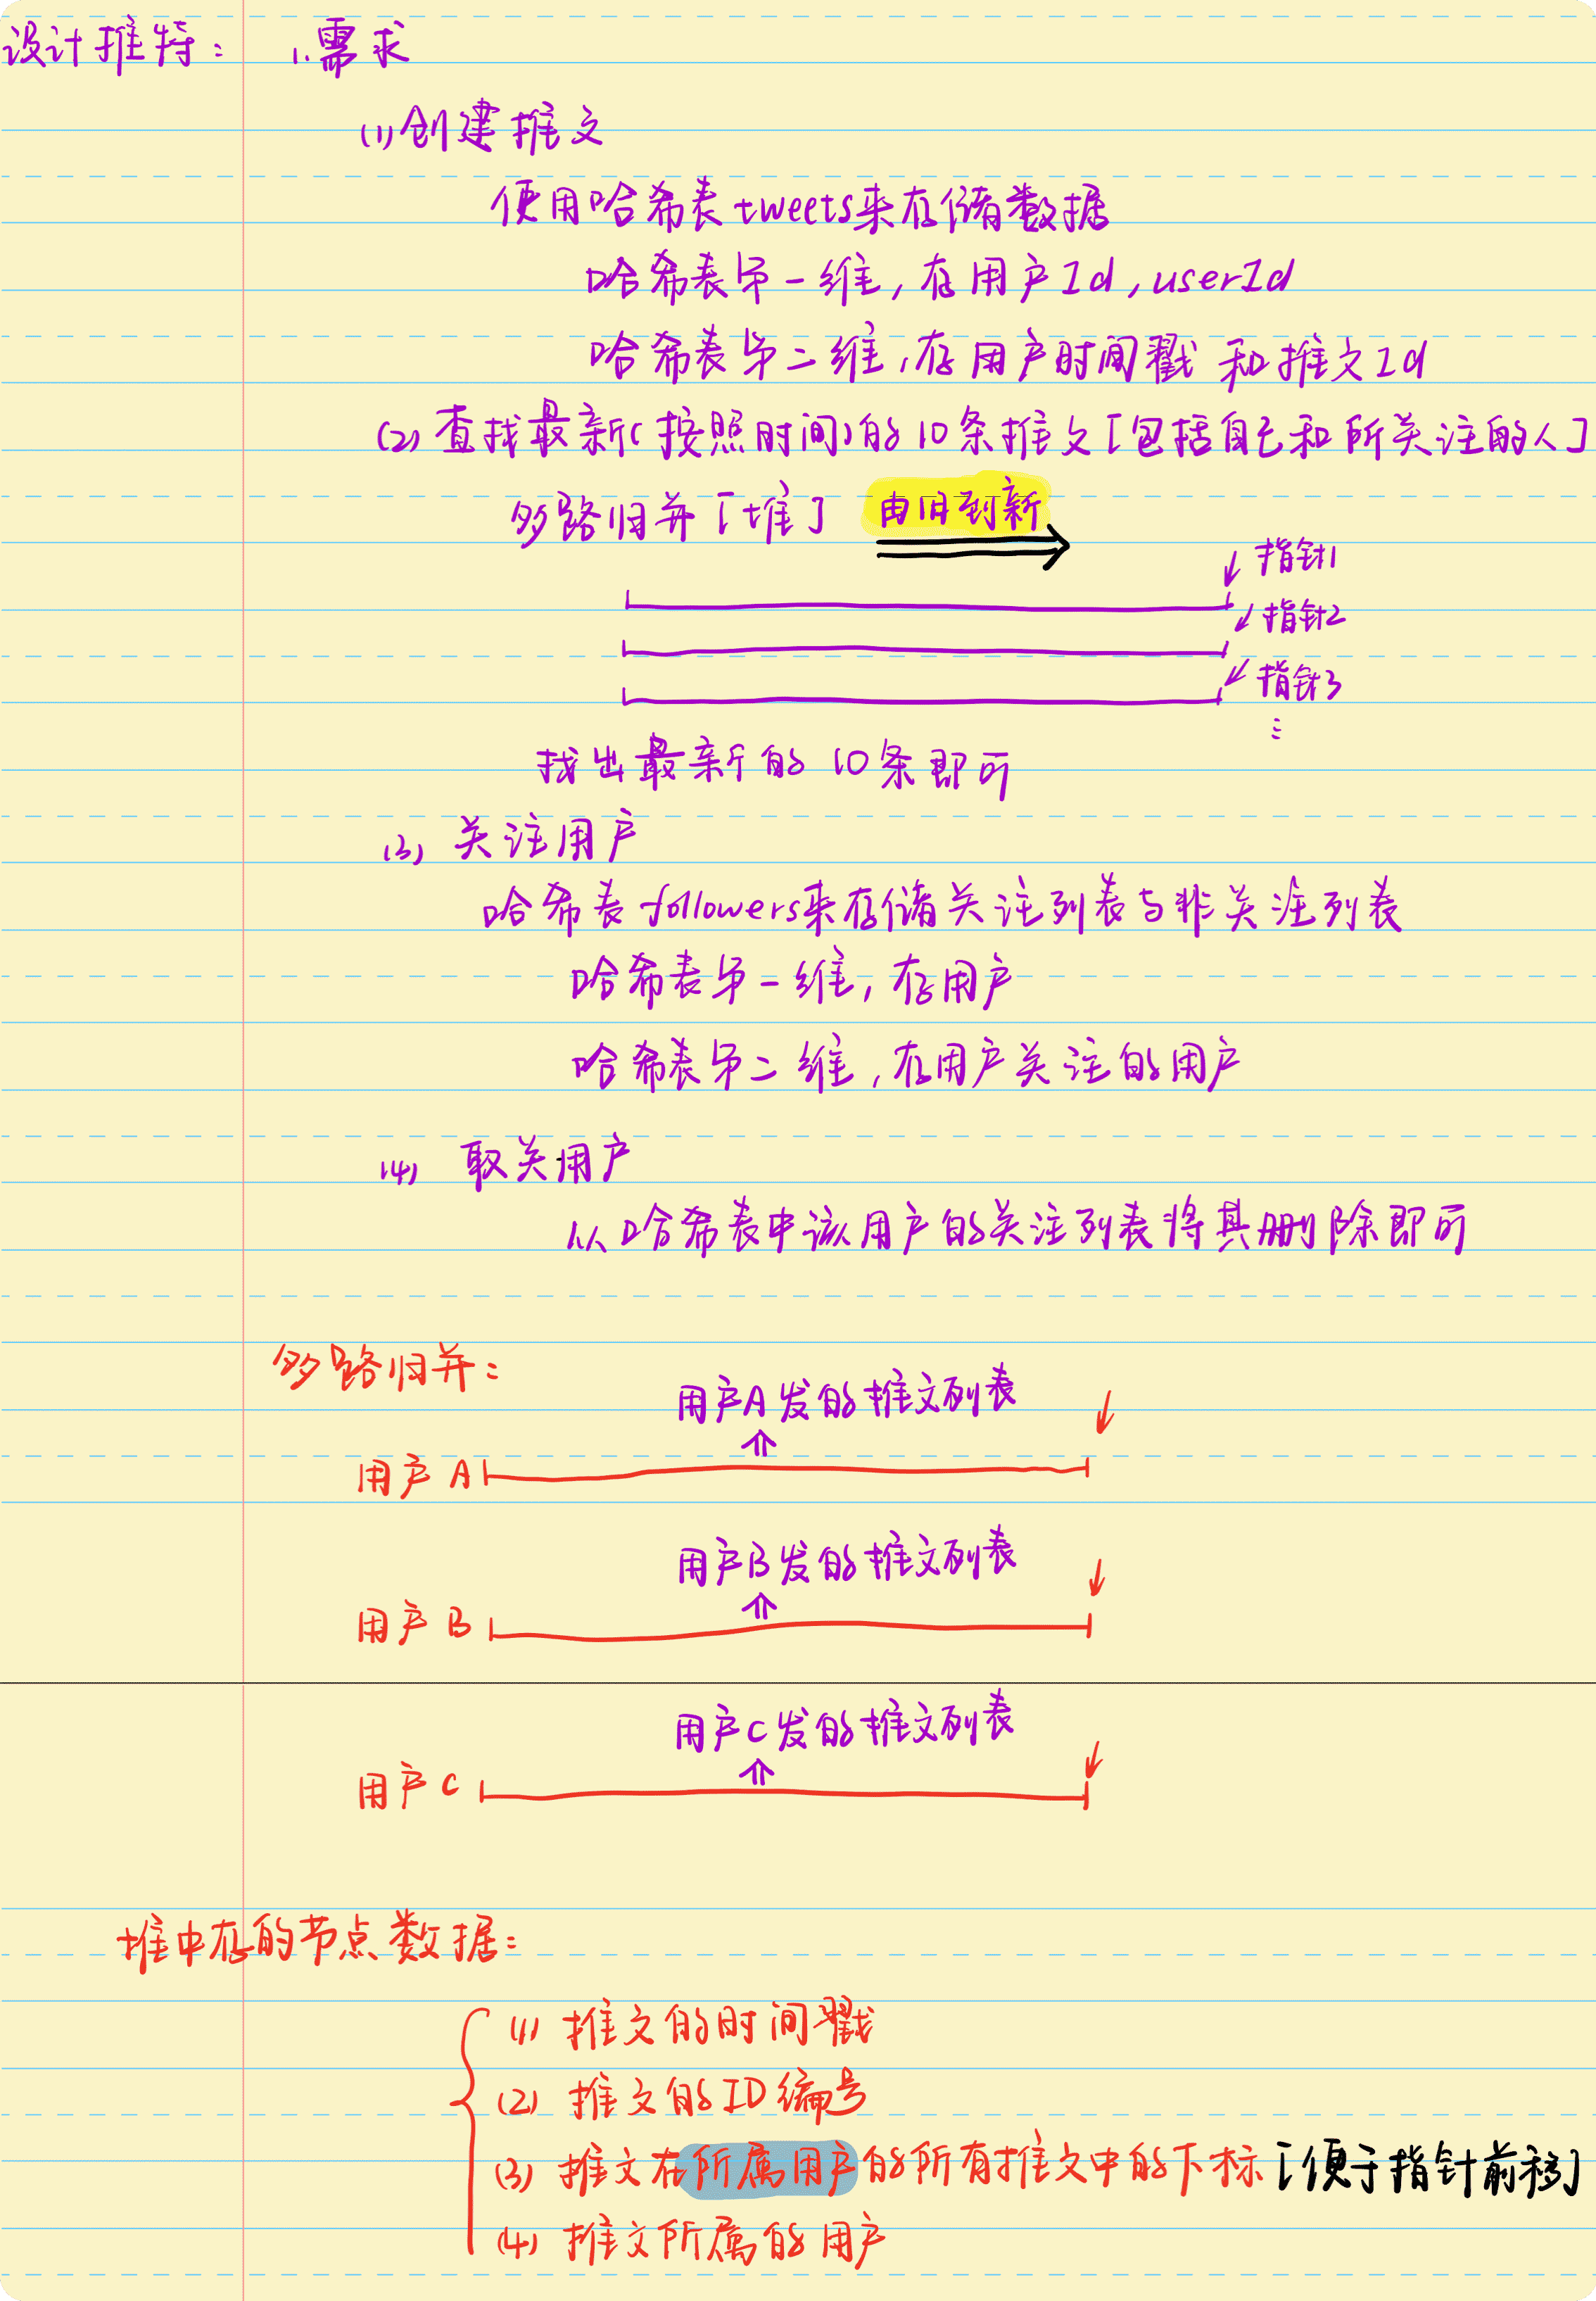 设计推特: 1.需求
(1)创建推文
使用哈希表tweets来存储数据
哈希表第一维,存用户Id,userId
哈希表第二维,存用户时间戳 和推文Id
(2)查找最新(按照时间)的10条推文[包括自己和所关注的人]
多路归并[堆] 由旧到新
指针1
指针2
指针3
⋮
找出最新的10条即可
(3) 关注用户
哈希表followers来存储关注列表与非关注列表
哈希表第一维,存用户
哈希表第二维,存用户关注的用户
(4) 取关用户
从哈希表中该用户的关注列表将其删除即可
多路归并:
用户A发的推文列表
用户A
用户B发的推文列表
用户B
用户C发的推文列表
用户C
堆中存的节点数据:
(1) 推文的时间戳
(2) 推文的ID编号
(3) 推文在所属用户的所有推文中的下标[便于指针前移]
(4) 推文所属的用户